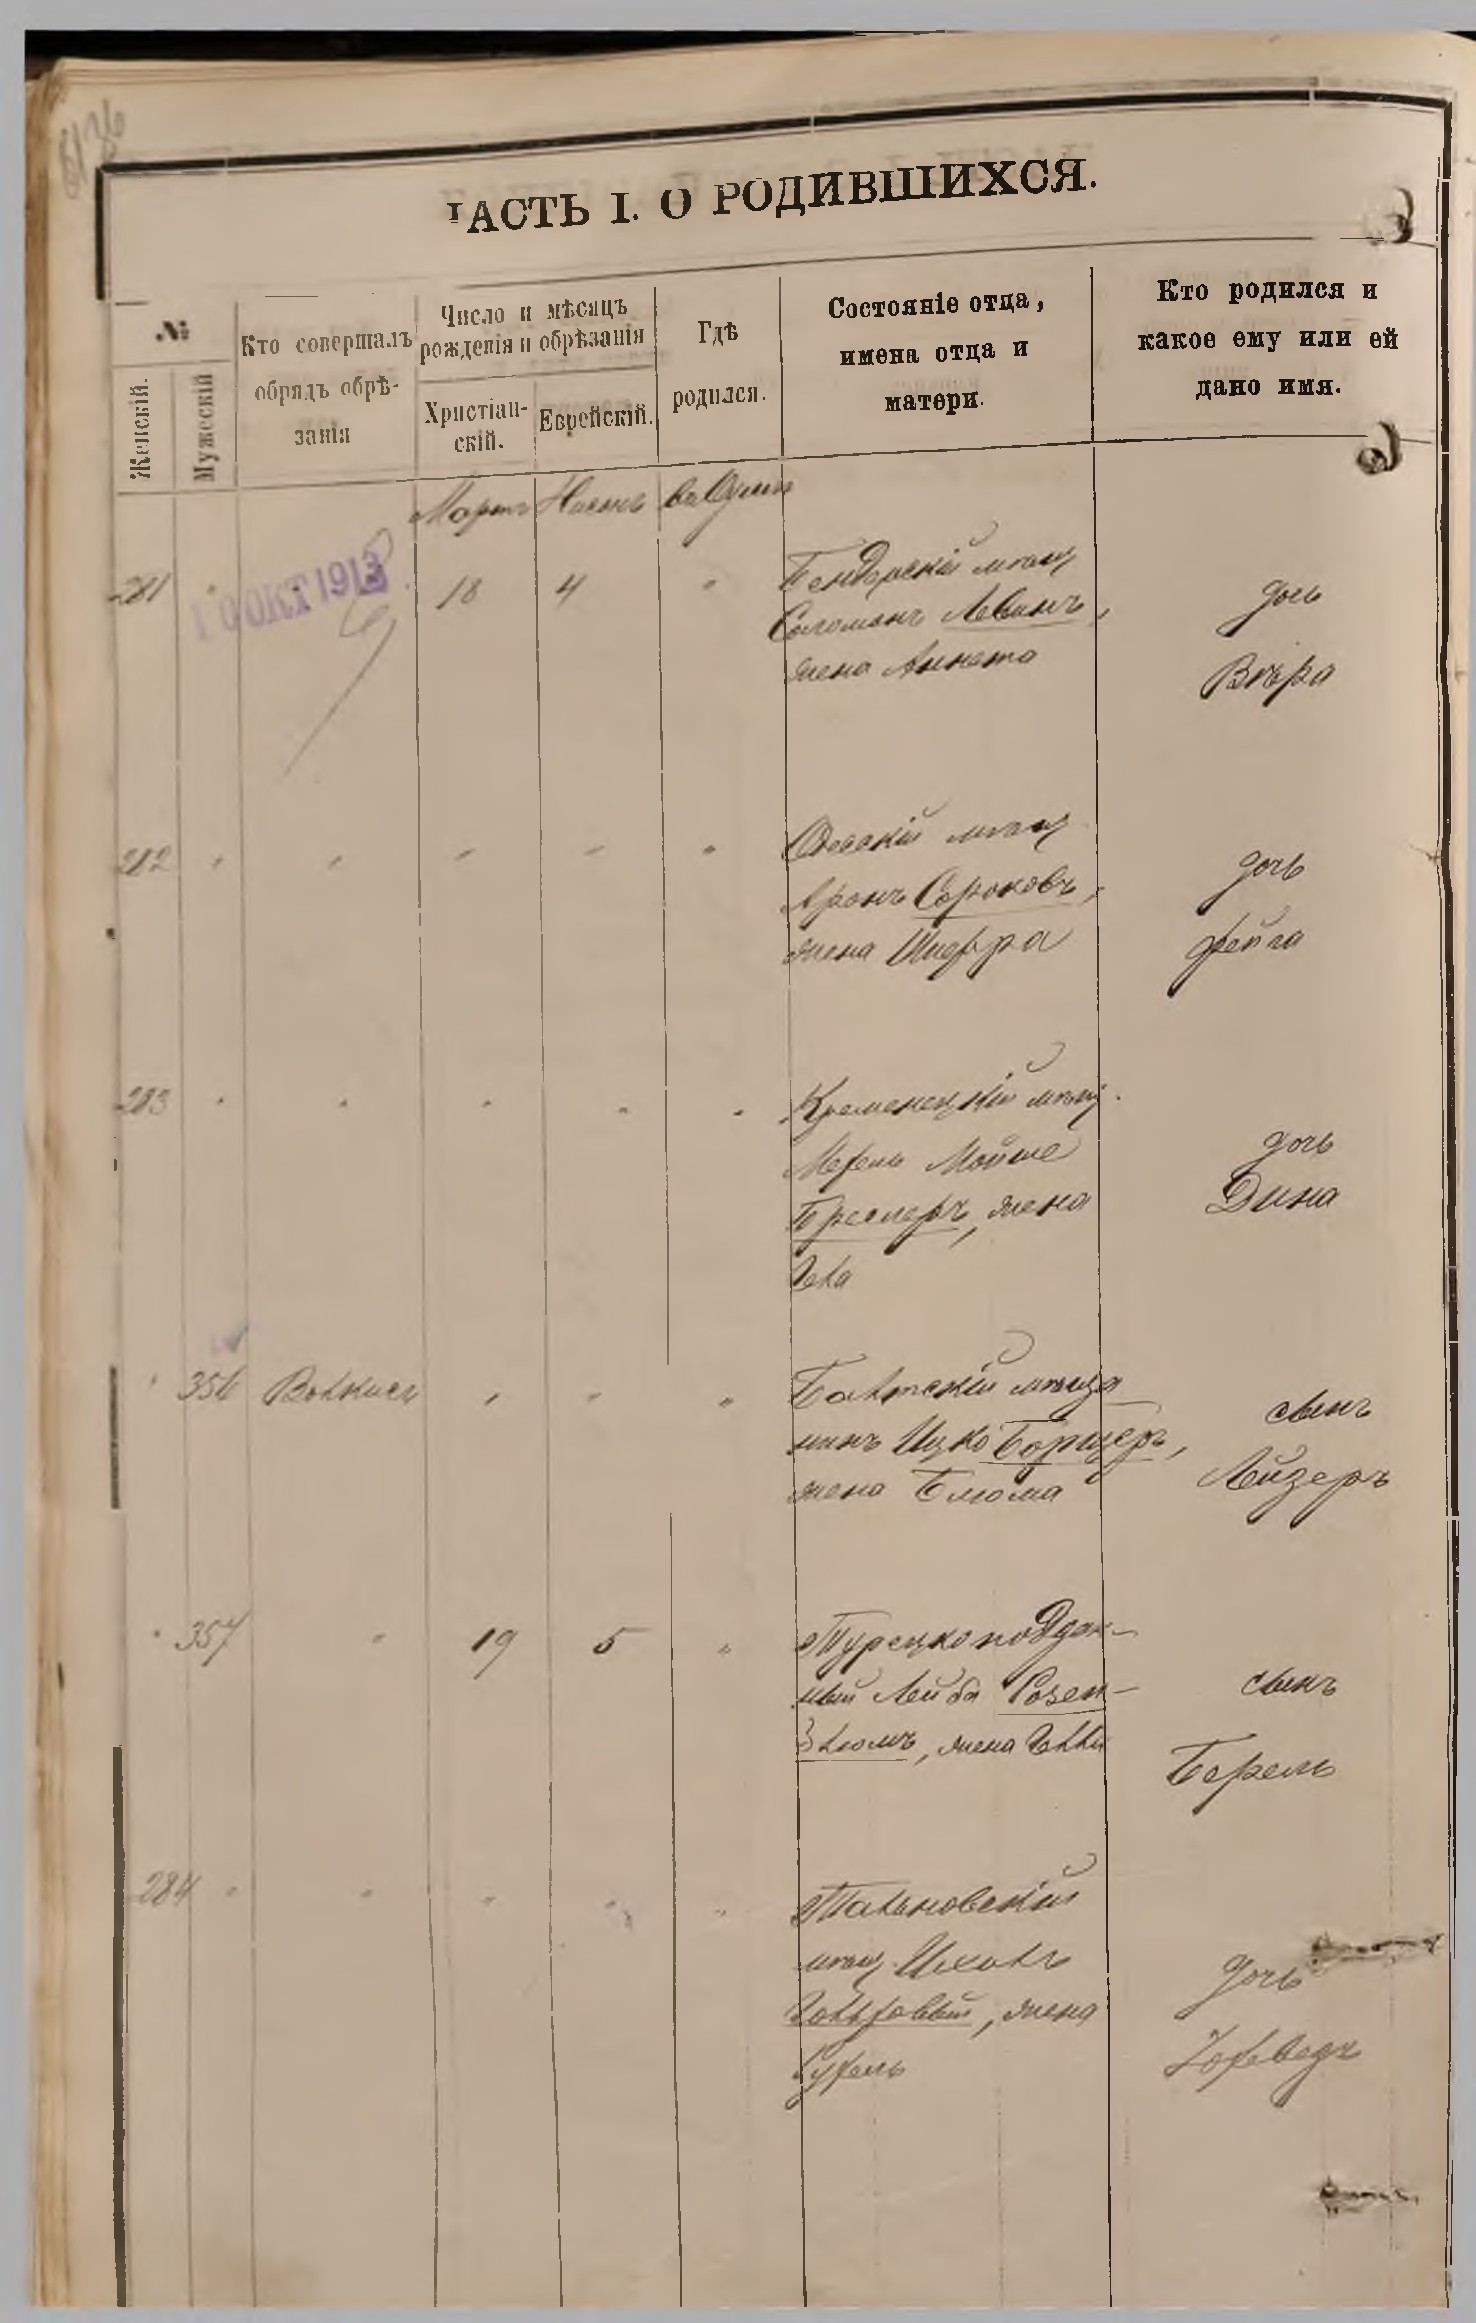 ЧАСТЬ I. О РОДИВШИХСЯ.
№
Женскій.
Мужескій
Кто совершалъ обрядъ обрѣ-занія
Число и мѣсяцъ рожденія и обрѣзанія
Христіан-скій.
Еврейскій.
Гдѣ родился.
Состояніе отца, имена отца и матери.
Кто родился и какое ему или ей дано имя.
Мартъ Нисонъ
281 " 18 4 "
10 ОКТ 1913
Бендерскій мѣщ
Соломонъ Левинъ,
жена Аннета
дочь
Вѣра
282 " " " " "
Одесскій мѣщ
Аронъ Сороковъ,
жена Шифра
дочь
Фейга
283 " " " " "
Кременецкій мѣщ.
Мехель Мойше
Бреслеръ, жена
дочь
Дина
" 356 Волкисъ " " "
Балтскій мѣща
нинъ Ицко Борщеръ,
жена Блюма
сынъ
Лейзеръ
" 357 " 19 5 "
Турецкоподдан-
ный Лейба Розен-
блюмъ, жена
сынъ
Берель
284 " " " " "
Тальновскій
мѣщ.
жена
Рухель
дочь